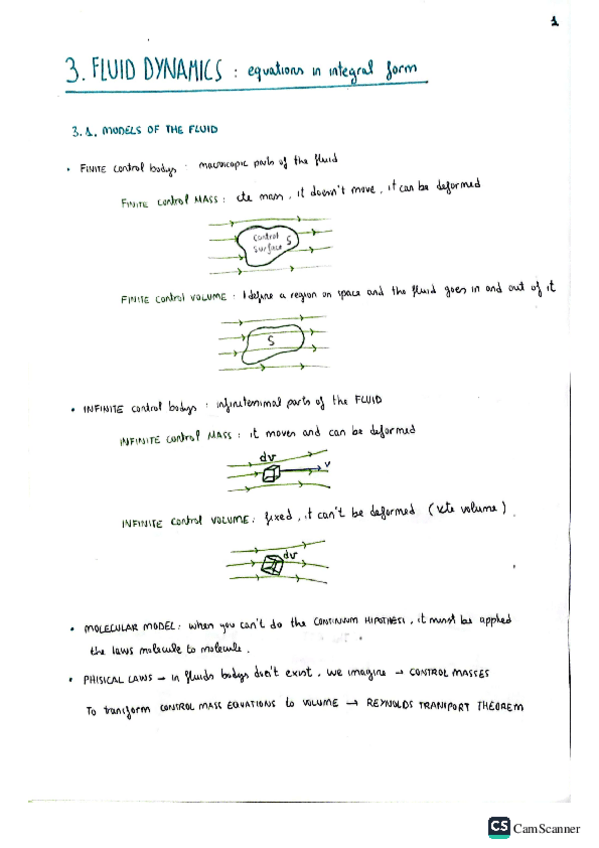 1
3. FLUID DYNAMICS : equations in integral form
3.1. MODELS OF THE FLUID
• FINITE control bodys : macroscopic parts of the fluid
FINITE control MASS : cte mass, it doesn't move, it can be deformed
control
surface S
FINITE control VOLUME : I define a region on space and the fluid goes in and out of it
S
• INFINITE control bodys : infinitesimal parts of the FLUID
INFINITE control MASS : it moves and can be deformed
dv
v
INFINITE control VOLUME : fixed, it can't be deformed (cte volume)
dv
• MOLECULAR MODEL : when you can't do the CONTINUUM HIPOTHESI, it must be applied
the laws molecule to molecule.
• PHISICAL LAWS → in fluids bodys don't exist, we imagine → CONTROL MASSES
To transform CONTROL MASS EQUATIONS to VOLUME → REYNOLDS TRANSPORT THEOREM
CS CamScanner